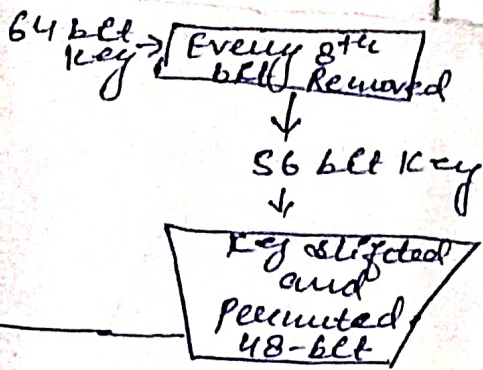 64 bit
key
Every 8th
bit Removed
56 bit Key
Key shifted
and
Permuted
48-bit